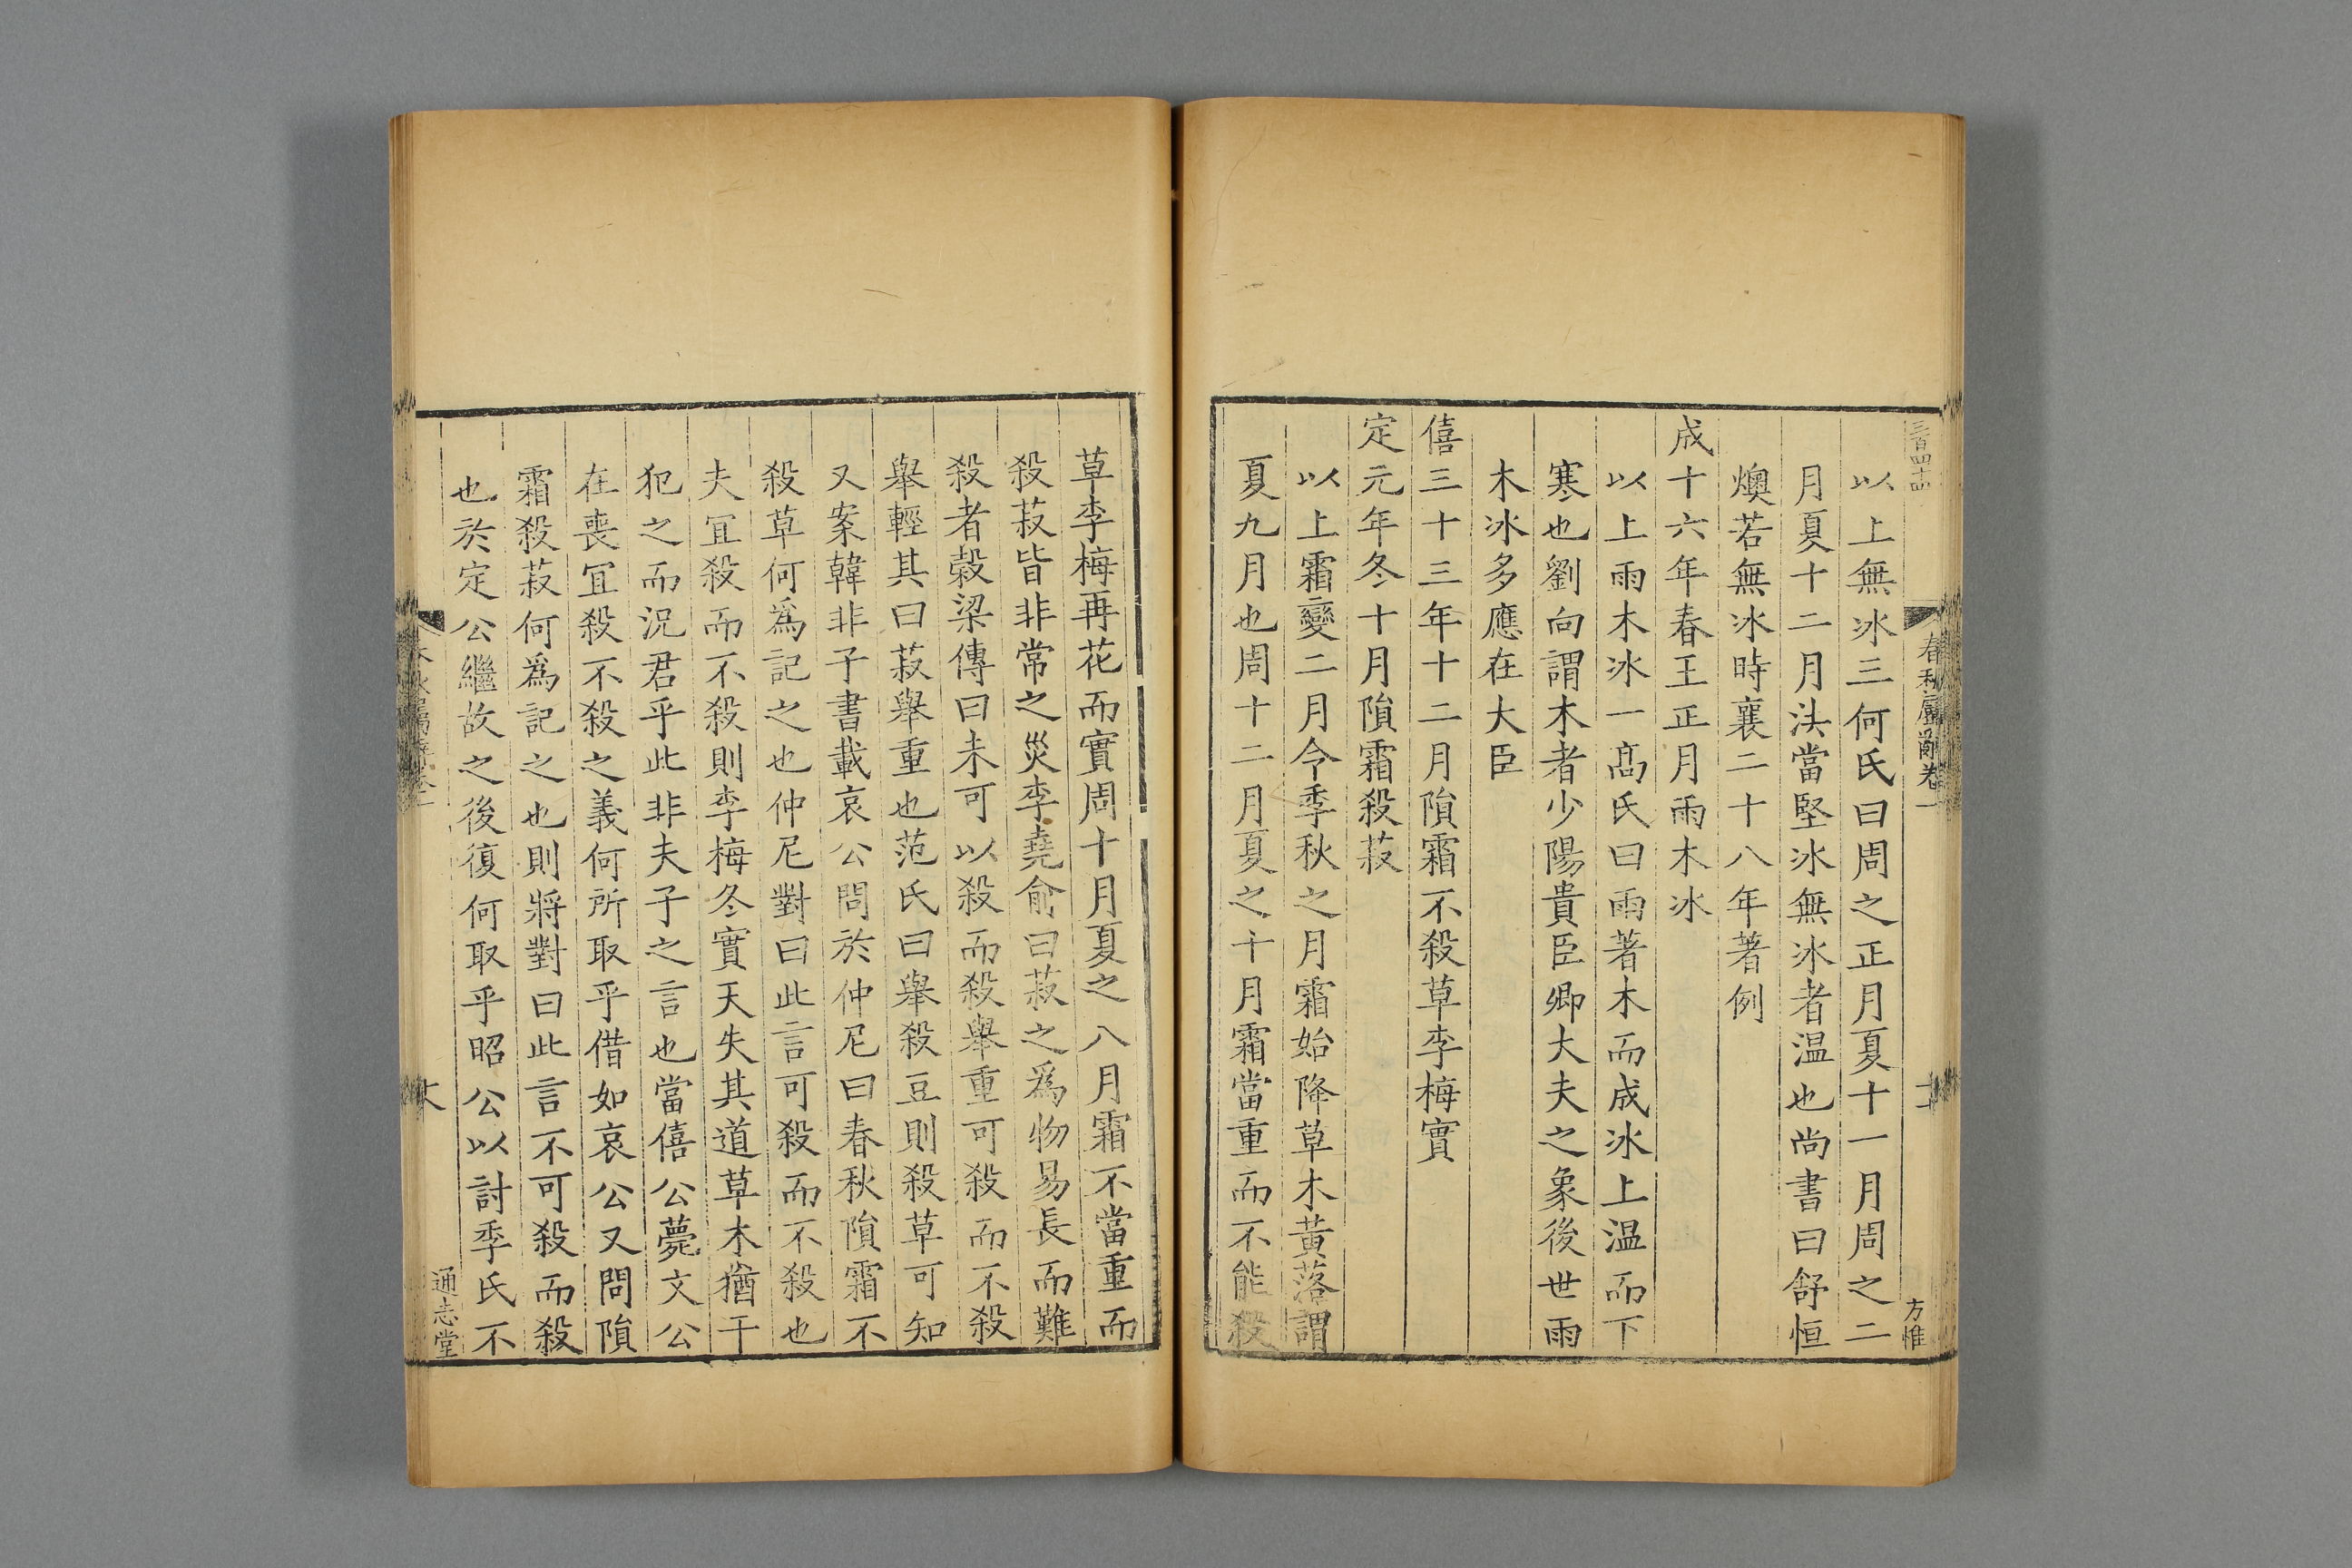 三百四十四
春秋屬辭卷一
方惟
以上無冰三何氏曰周之正月夏十一月周之二
月夏十二月法當堅冰無冰者温也尚書曰舒恒
燠若無冰時襄二十八年著例
成十六年春王正月雨木冰
以上雨木冰一髙氏曰雨著木而成冰上温而下
寒也劉向謂木者少陽貴臣卿大夫之象後世雨
木冰多應在大臣
僖三十三年十二月隕霜不殺草李梅實
定元年冬十月隕霜殺菽
以上霜變二月令季秋之月霜始降草木黃落謂
夏九月也周十二月夏之十月霜當重而不能殺
草李梅再花而實周十月夏之八月霜不當重而
殺菽皆非常之災李堯俞曰菽之爲物易長而難
殺者榖梁傳曰未可以殺而殺舉重可殺而不殺
舉輕其曰菽舉重也范氏曰舉殺豆則殺草可知
又案韓非子書載哀公問於仲尼曰春秋隕霜不
殺草何爲記之也仲尼對曰此言可殺而不殺也
夫宜殺而不殺則李梅冬實天失其道草木猶干
犯之而況君乎此非夫子之言也當僖公薨文公
在喪宜殺不殺之義何所取乎借如哀公又問隕
霜殺菽何爲記之也則將對曰此言不可殺而殺
也於定公繼故之後復何取乎昭公以討季氏不
通志堂